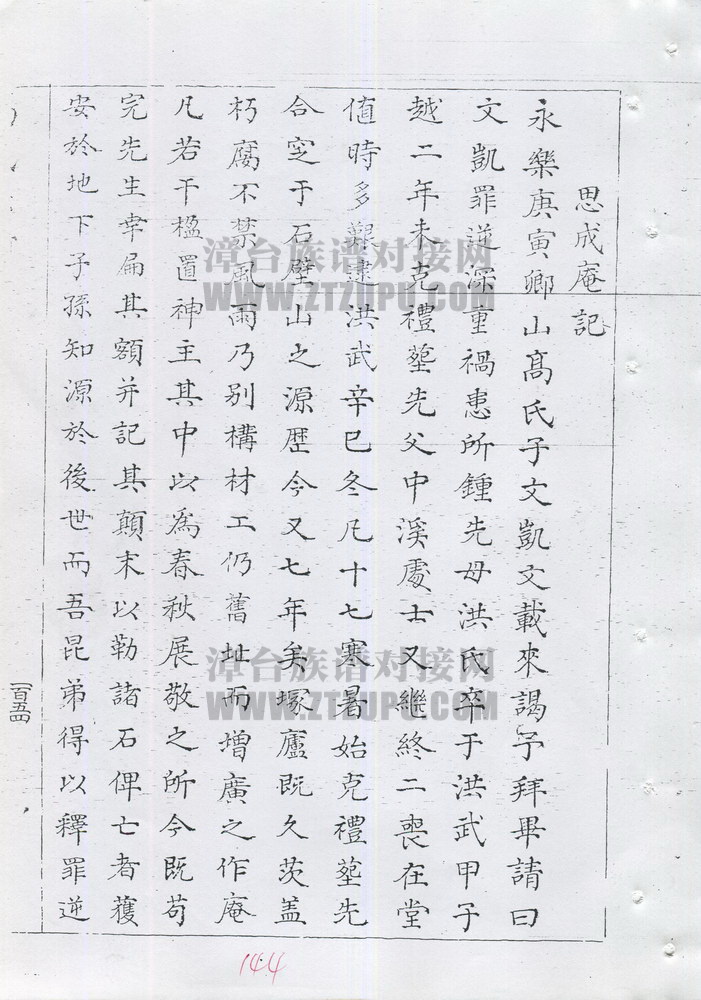 思成庵記
永樂庚寅鄉山髙氏子文凱文載來謁予拜畢請曰
文凱罪逆深重禍患所鍾先母洪氏卒于洪武甲子
越二年未克禮塟先父中溪處士又繼終二喪在堂
值時多艱逮洪武辛巳冬凡十七寒暑始克禮塟先
合窆于石壁山之源歴今又七年矣塚廬既久茨盖
朽腐不禁風雨乃别構材工仍舊址而增廣之作庵
凡若干楹置神主其中以為春秋展敬之所今既苟
完先生幸扁其額并記其顛末以勒諸石俾亡者獲
安於地下子孫知源於後世而吾昆弟得以釋罪逆
一百五四
144
漳台族谱对接网
WWW.ZTZUPU.COM
漳台族谱对接网
WWW.ZTZUPU.COM